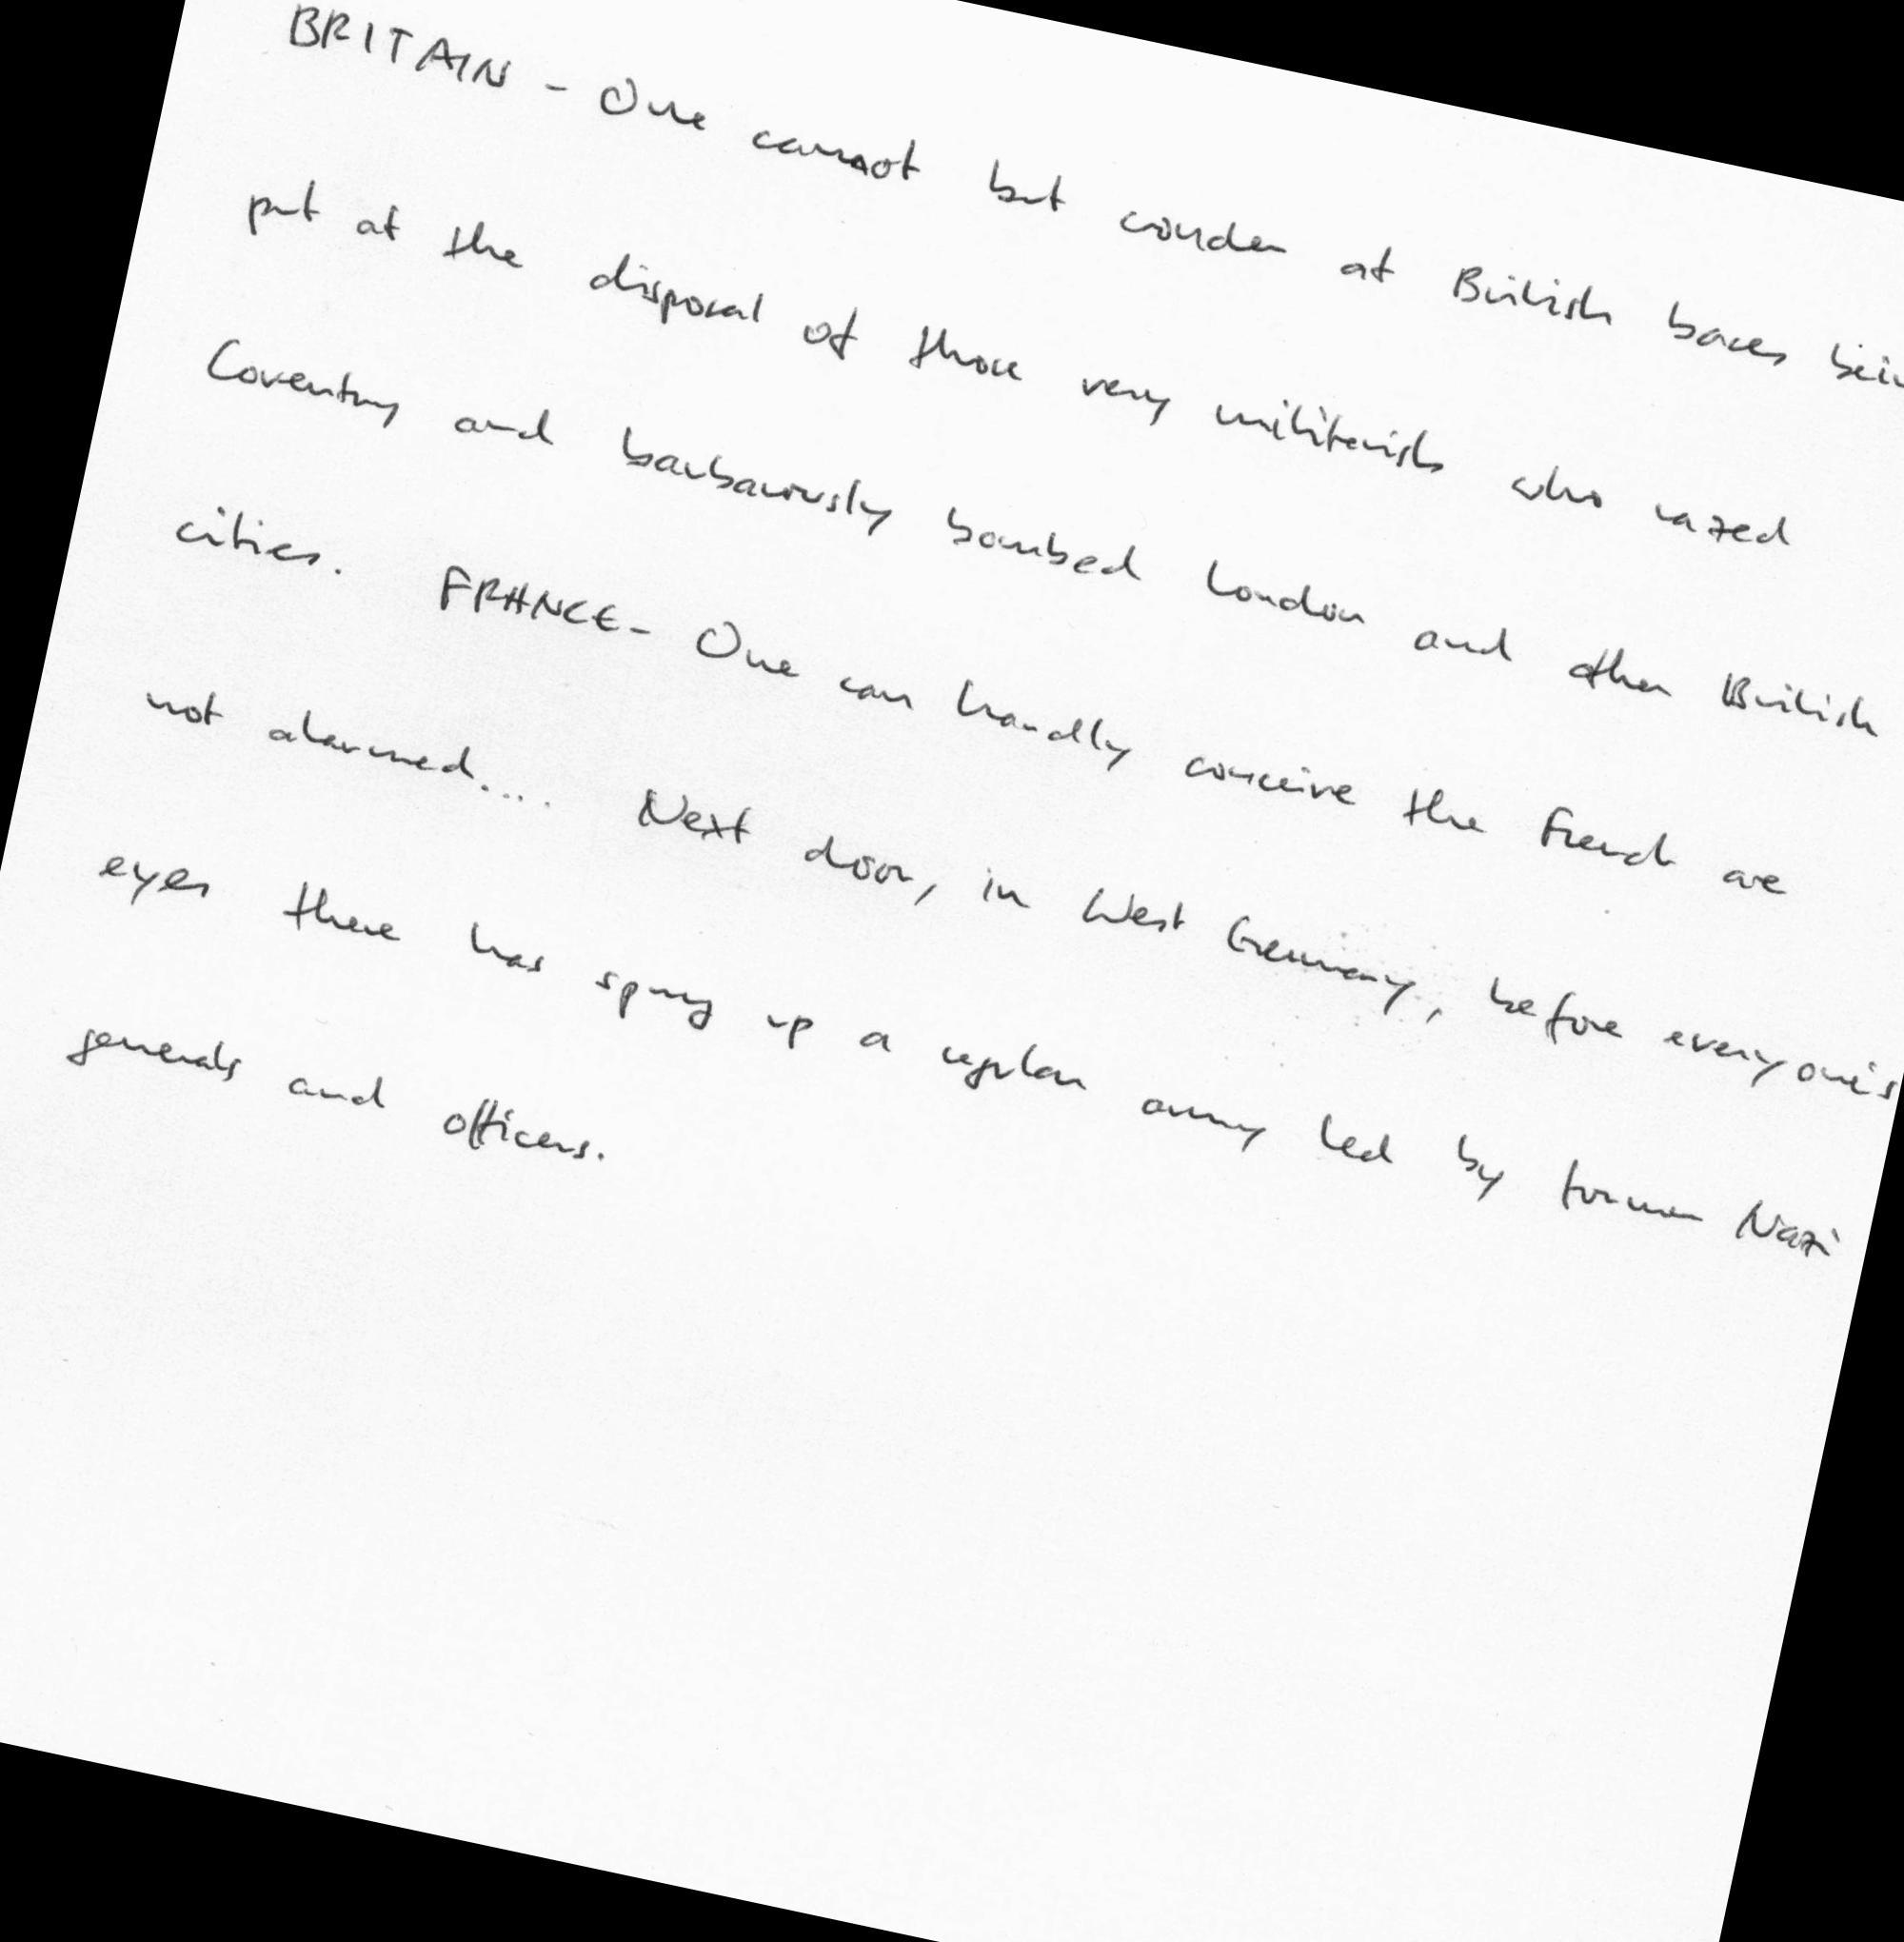 BRITAIN - One cannot but wonder at British bases
put at the disposal of those very militarists who razed
Coventry and barbarously bombed London and other British
cities. FRANCE - One can hardly conceive the French are
not alarmed.... Next door, in West Germany, before everyone's
eyes there has sprung up a regular army led by former Nazi
generals and officers.